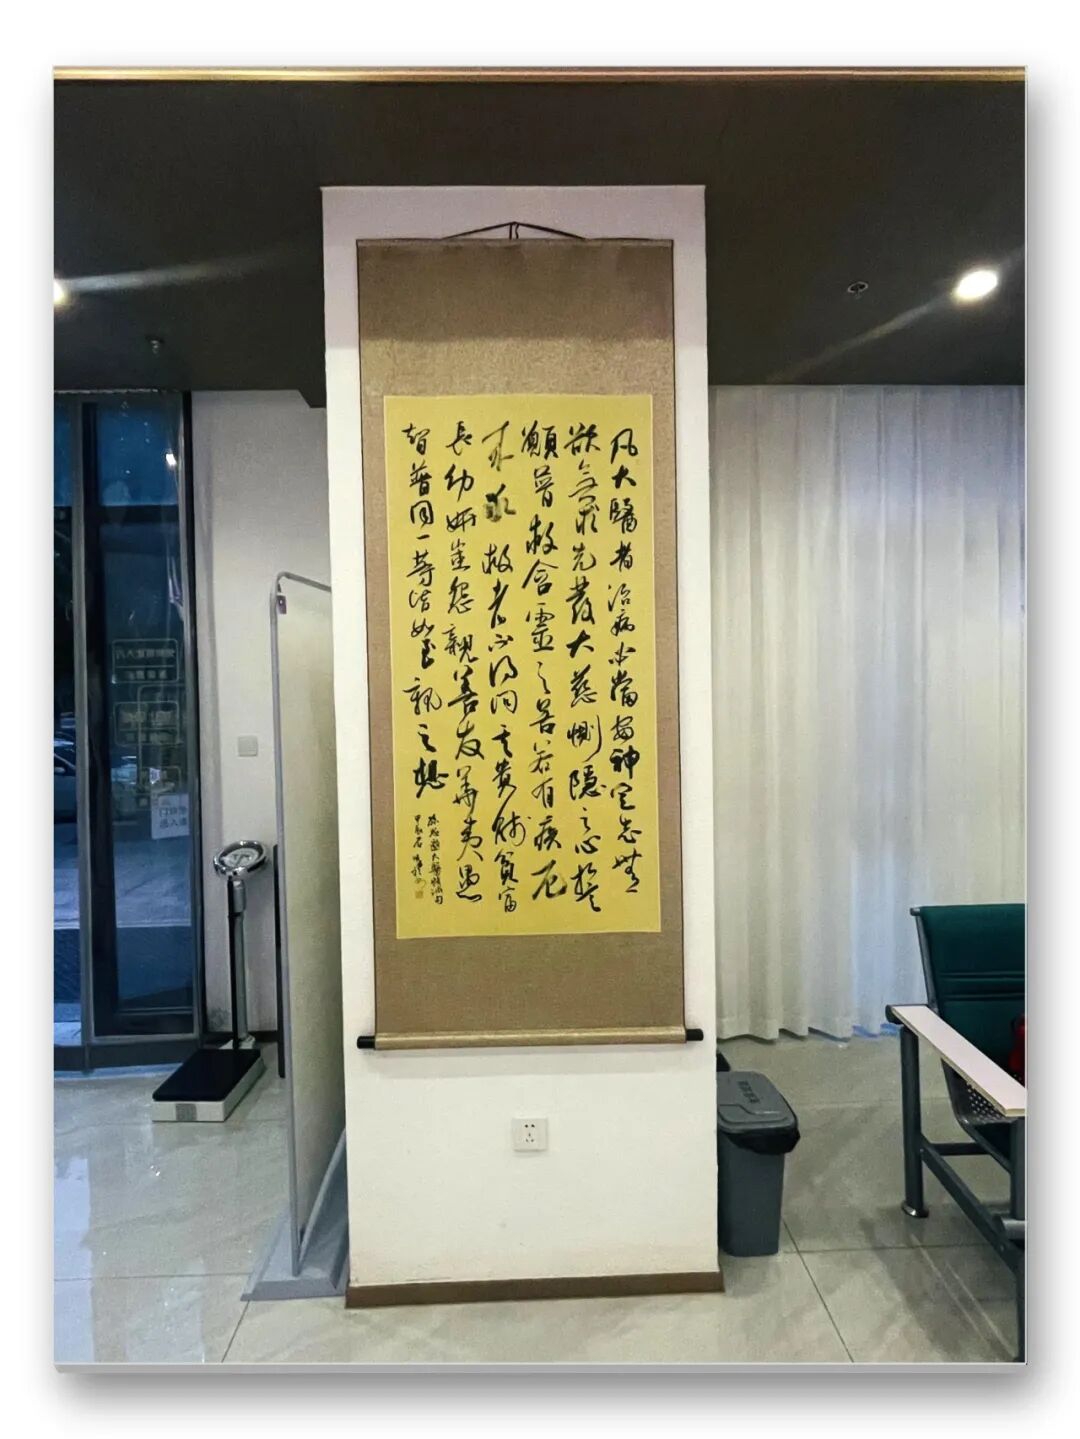 凡大醫者治病必當安神定志無
欲無求先發大慈惻隱之心誓
願普救含靈之苦若有疾厄
來求救者不得問其貴賤貧富
長幼妍蚩怨親善友華夷愚
智普同一等皆如至親之想
孫思邈大醫精誠句
甲辰